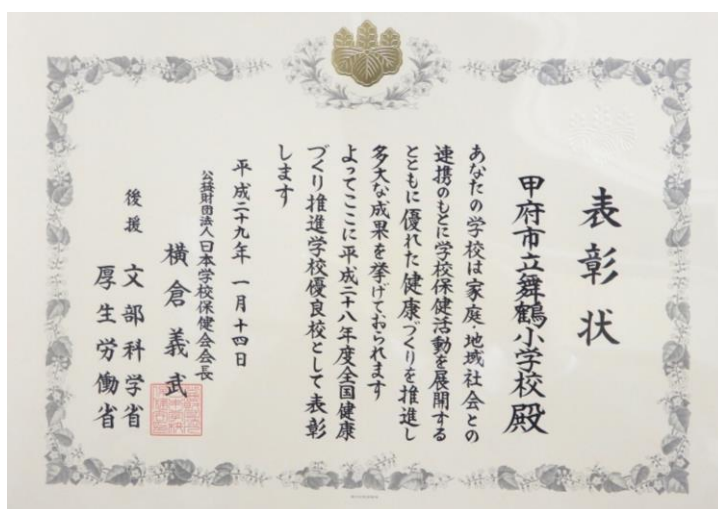 表彰状
甲府市立舞鶴小学校殿
あなたの学校は家庭・地域社会との
連携のもとに学校保健活動を展開する
とともに優れた健康づくりを推進し
多大な成果を挙げておられます
よってここに平成二十八年度全国健康
づくり推進学校優良校として表彰
します
平成二十九年一月十四日
公益財団法人日本学校保健会会長
横倉義武
後援 文部科学省
厚生労働省